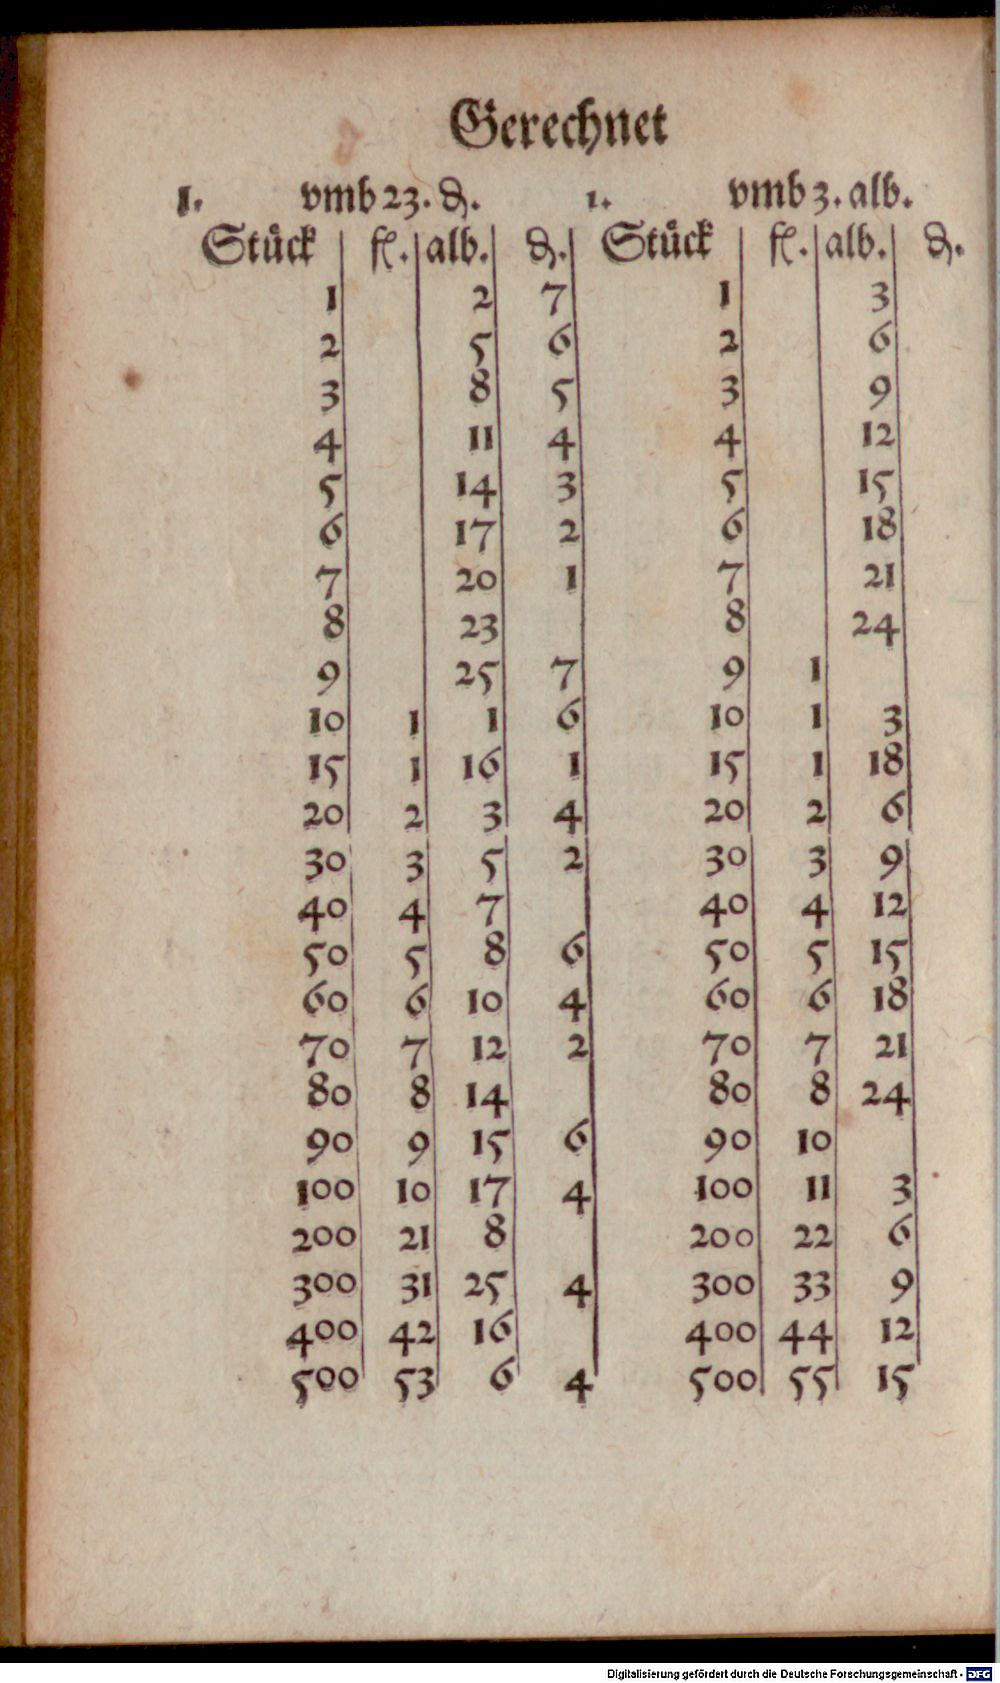 Gerechnet
1. vmb 23. ₰. 1. vmb 3. alb.
Stück fl. alb. ₰. Stück fl. alb. ₰.
1 2 7 1 3
2 5 6 2 6
3 8 5 3 9
4 11 4 4 12
5 14 3 5 15
6 17 2 6 18
7 20 1 7 21
8 23 8 24
9 25 7 9 1
10 1 1 6 10 1 3
15 1 16 1 15 1 18
20 2 3 4 20 2 6
30 3 5 2 30 3 9
40 4 7 40 4 12
50 5 8 6 50 5 15
60 6 10 4 60 6 18
70 7 12 2 70 7 21
80 8 14 80 8 24
90 9 15 6 90 10
100 10 17 4 100 11 3
200 21 8 200 22 6
300 31 25 4 300 33 9
400 42 16 400 44 12
500 53 6 4 500 55 15
Digitalisierung gefördert durch die Deutsche Forschungsgemeinschaft - DFG